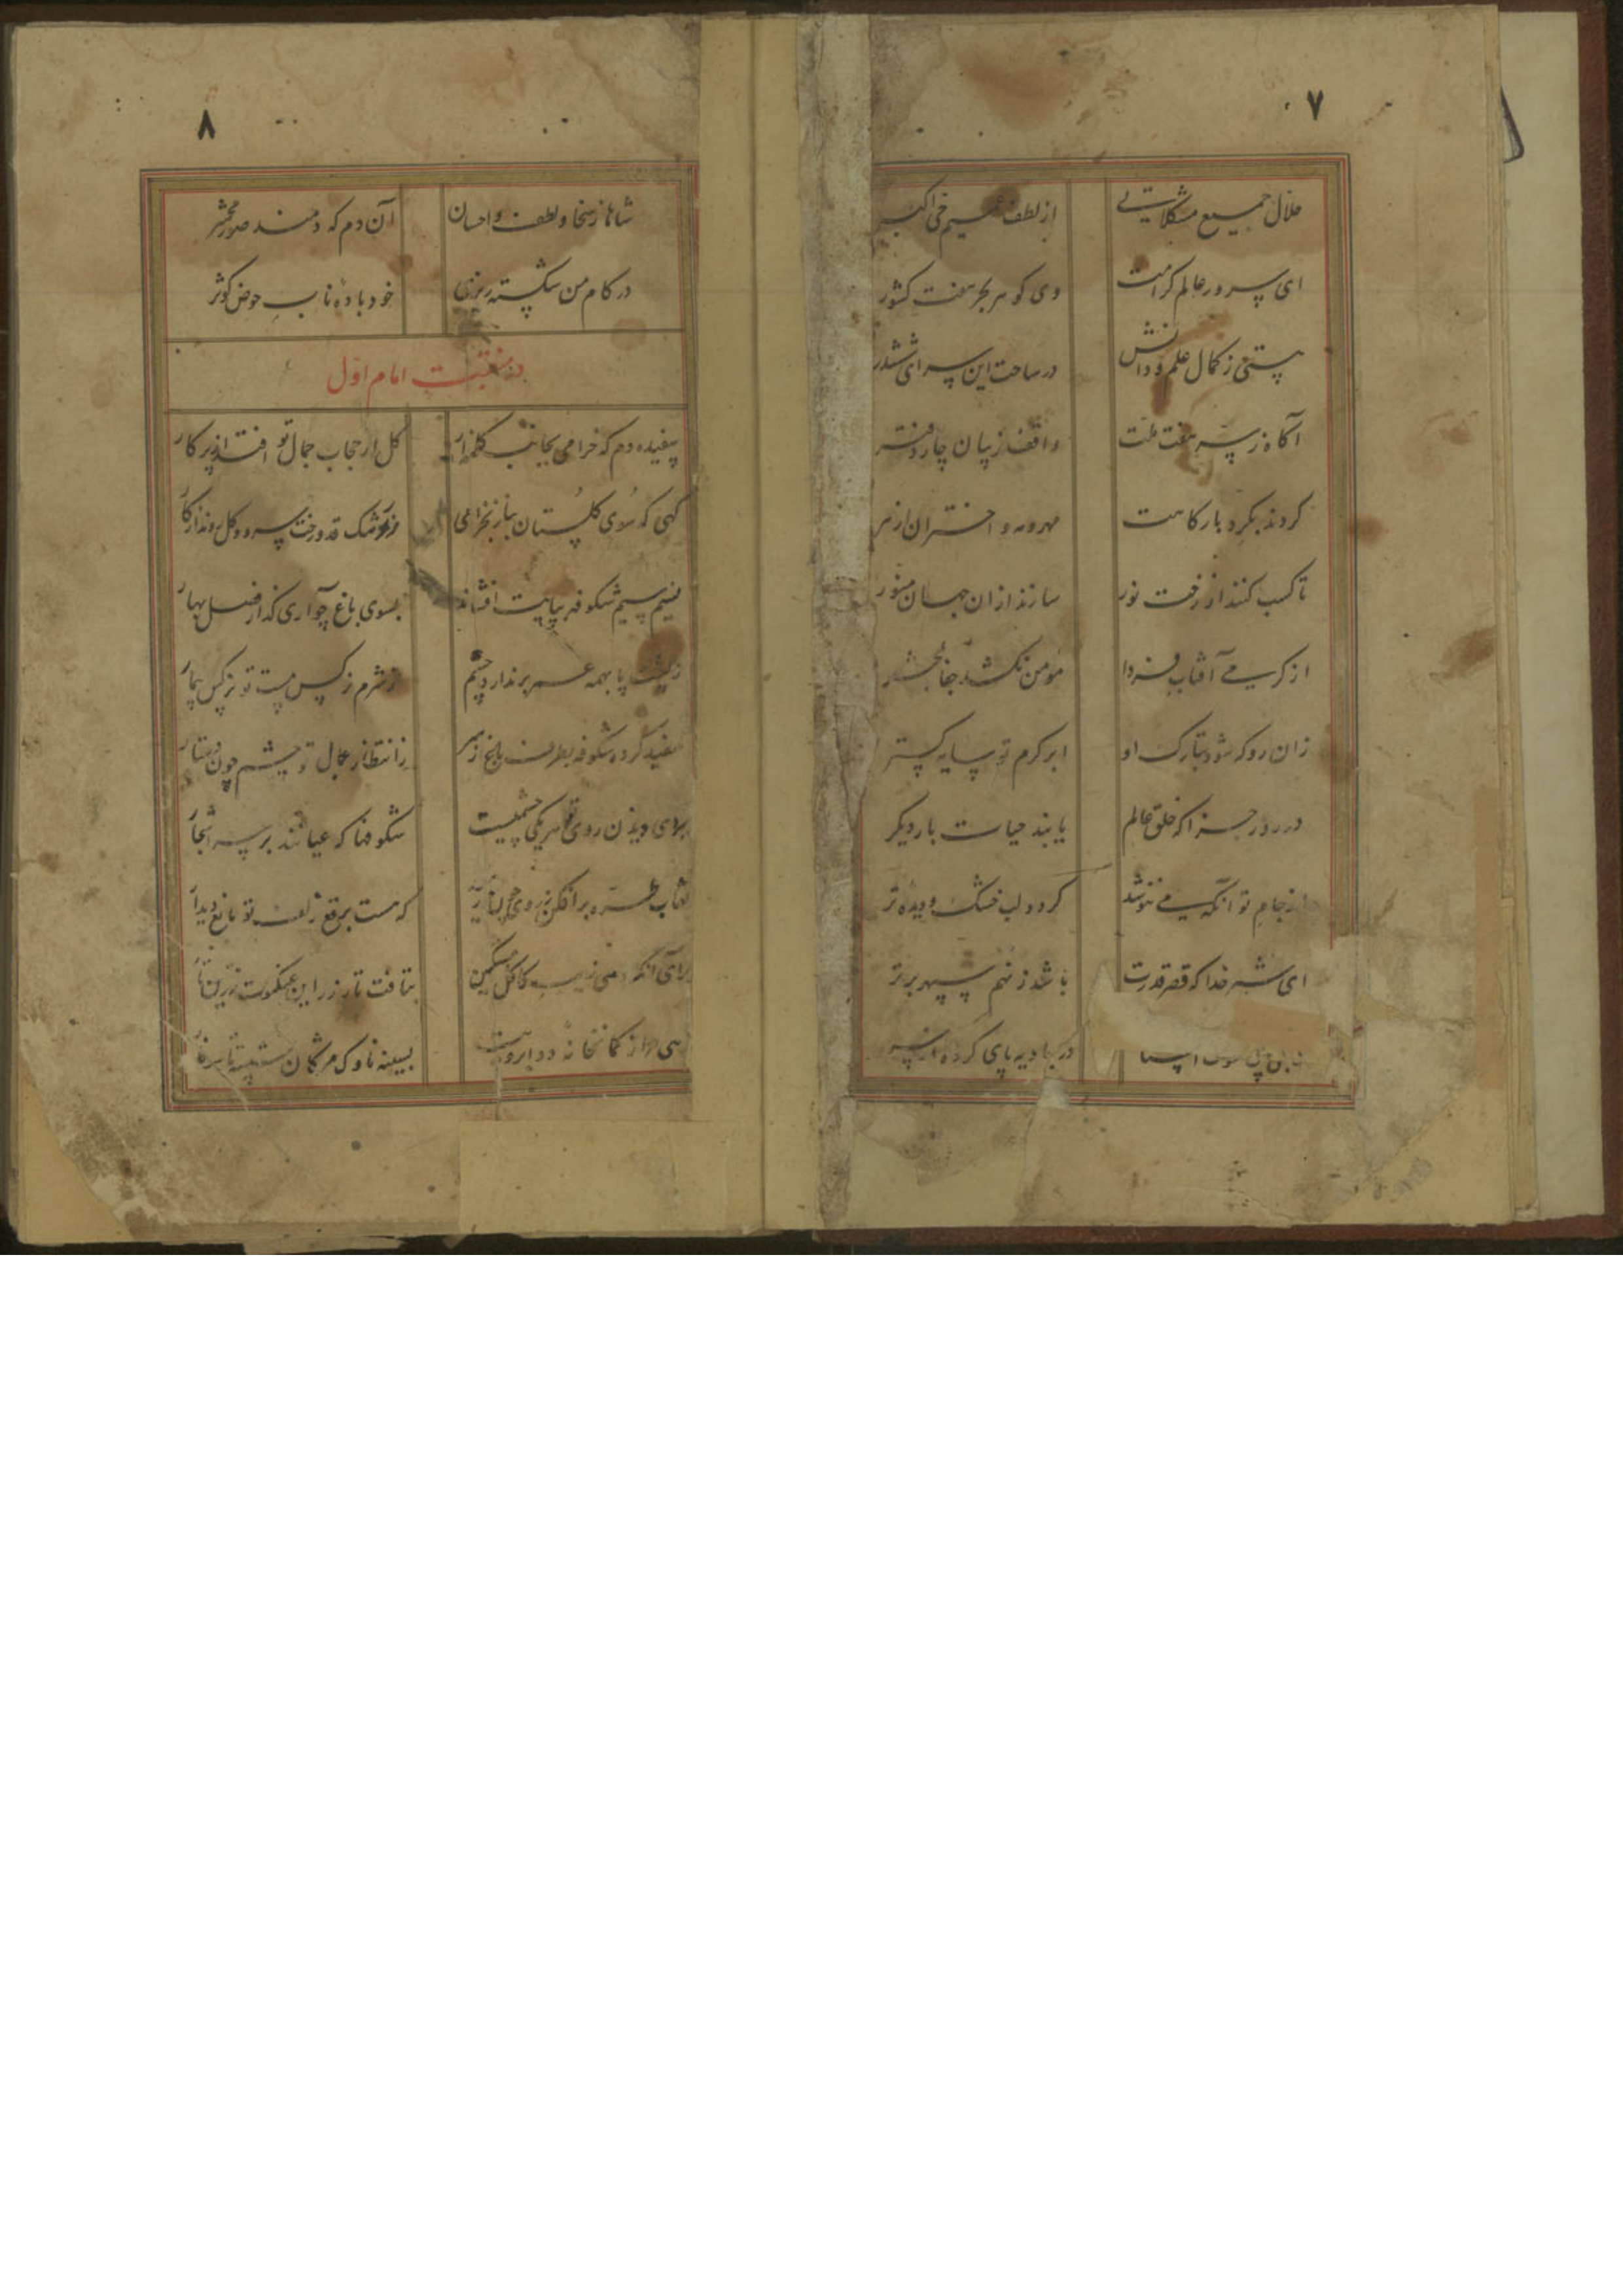 ۷
حلال جمیع مشکلاتی از لطف عمیم حی اکبر
ای سرور عالم کرامت وی گوهر بحر هفت کشور
هستی ز کمال علم و دانش در ساحت این سرای ششدر
آگاه ز سر هفت ملت واقف ز بیان چار دفتر
کردند بگرد بارگاهت مهر و مه و اختران از سر
تا کسب کنند از رخت نور سازند از آن جهان منور
از گرمی آفتاب فردا مومن نکشد جفا بمحشر
زان رو که شود بتارک او ابر کرم تو سایه گستر
در روز جزا که خلق عالم یابند حیات بار دیگر
از جام تو آنکه می ننوشد گردد لب خشک و دیده تر
ای شیر خدا که قصر قدرت باشد ز نهم سپهر برتر
در بادیه پای کرده از سر
۸
شاها ز سخا و لطف و احسان آن دم که دمند صور محشر
در کام من شکسته ریزی خود باده ناب حوض کوثر
در منقبت امام اول
سفیده دم که خرامی بجانب گلزار گل از حجاب جمال تو افتد از پرکار
گهی که سوی گلستان بناز بخرامی ز رشک قد و رخت سرو و گل روند از کار
نسیم سیم شکوفه بپایت افشاند بسوی باغ چو آری گذار فصل بهار
ز پشت پا بهمه عمر بر ندارد چشم ز شرم نرگس مست تو نرگس بیمار
سفید کرده شکوفه بطرف باغ از مهر ز انتظار جمال تو چشم چون
برای دیدن روی تو هر یکی چشمیست شکوفها که عیانند بر سر اشجار
نقاب طره برافکن ز روی که هست برقع زلف تو مانع دیدار
برای آنکه کاکل مشکین بتافت تار زر این عنکبوت زرین تار
از کمانخانه دو ابرویت بسینه ناوک مژگان